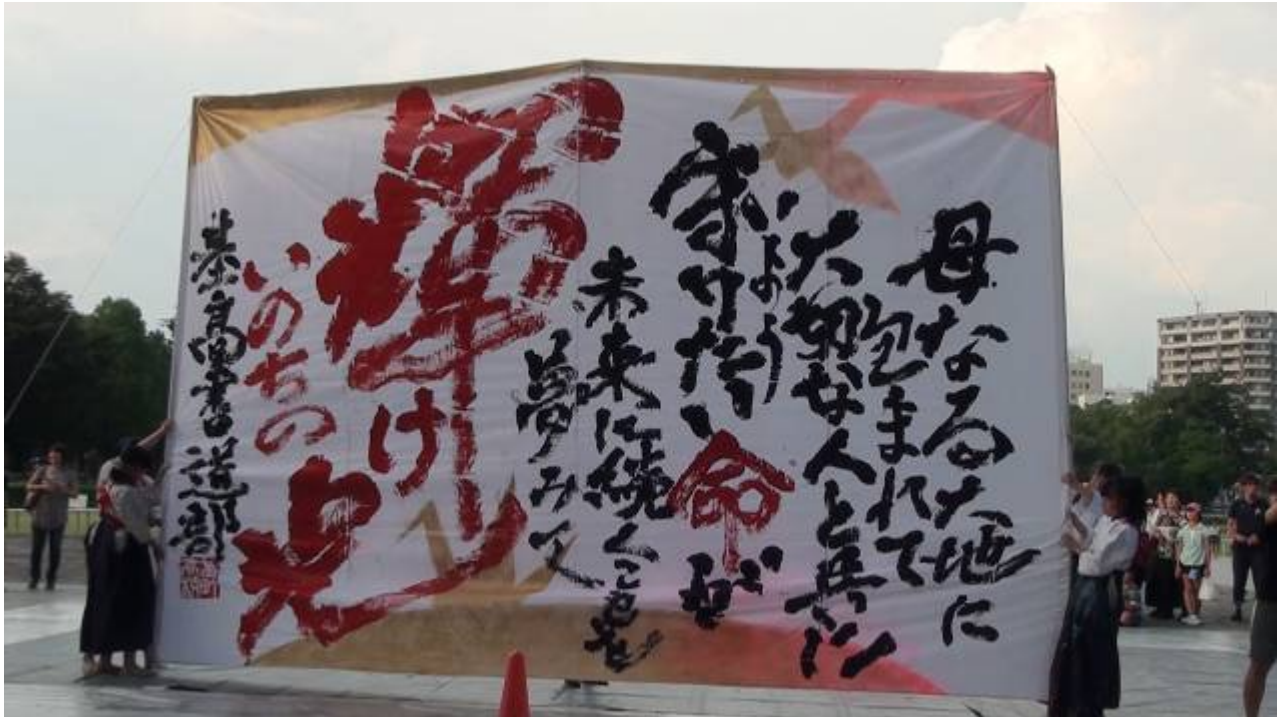 母なる大地に
包まれて
大切な人と共に
いよう
守りたい命が
未来に続くことを
夢みて
輝け!
いのちの
光
基高書道部